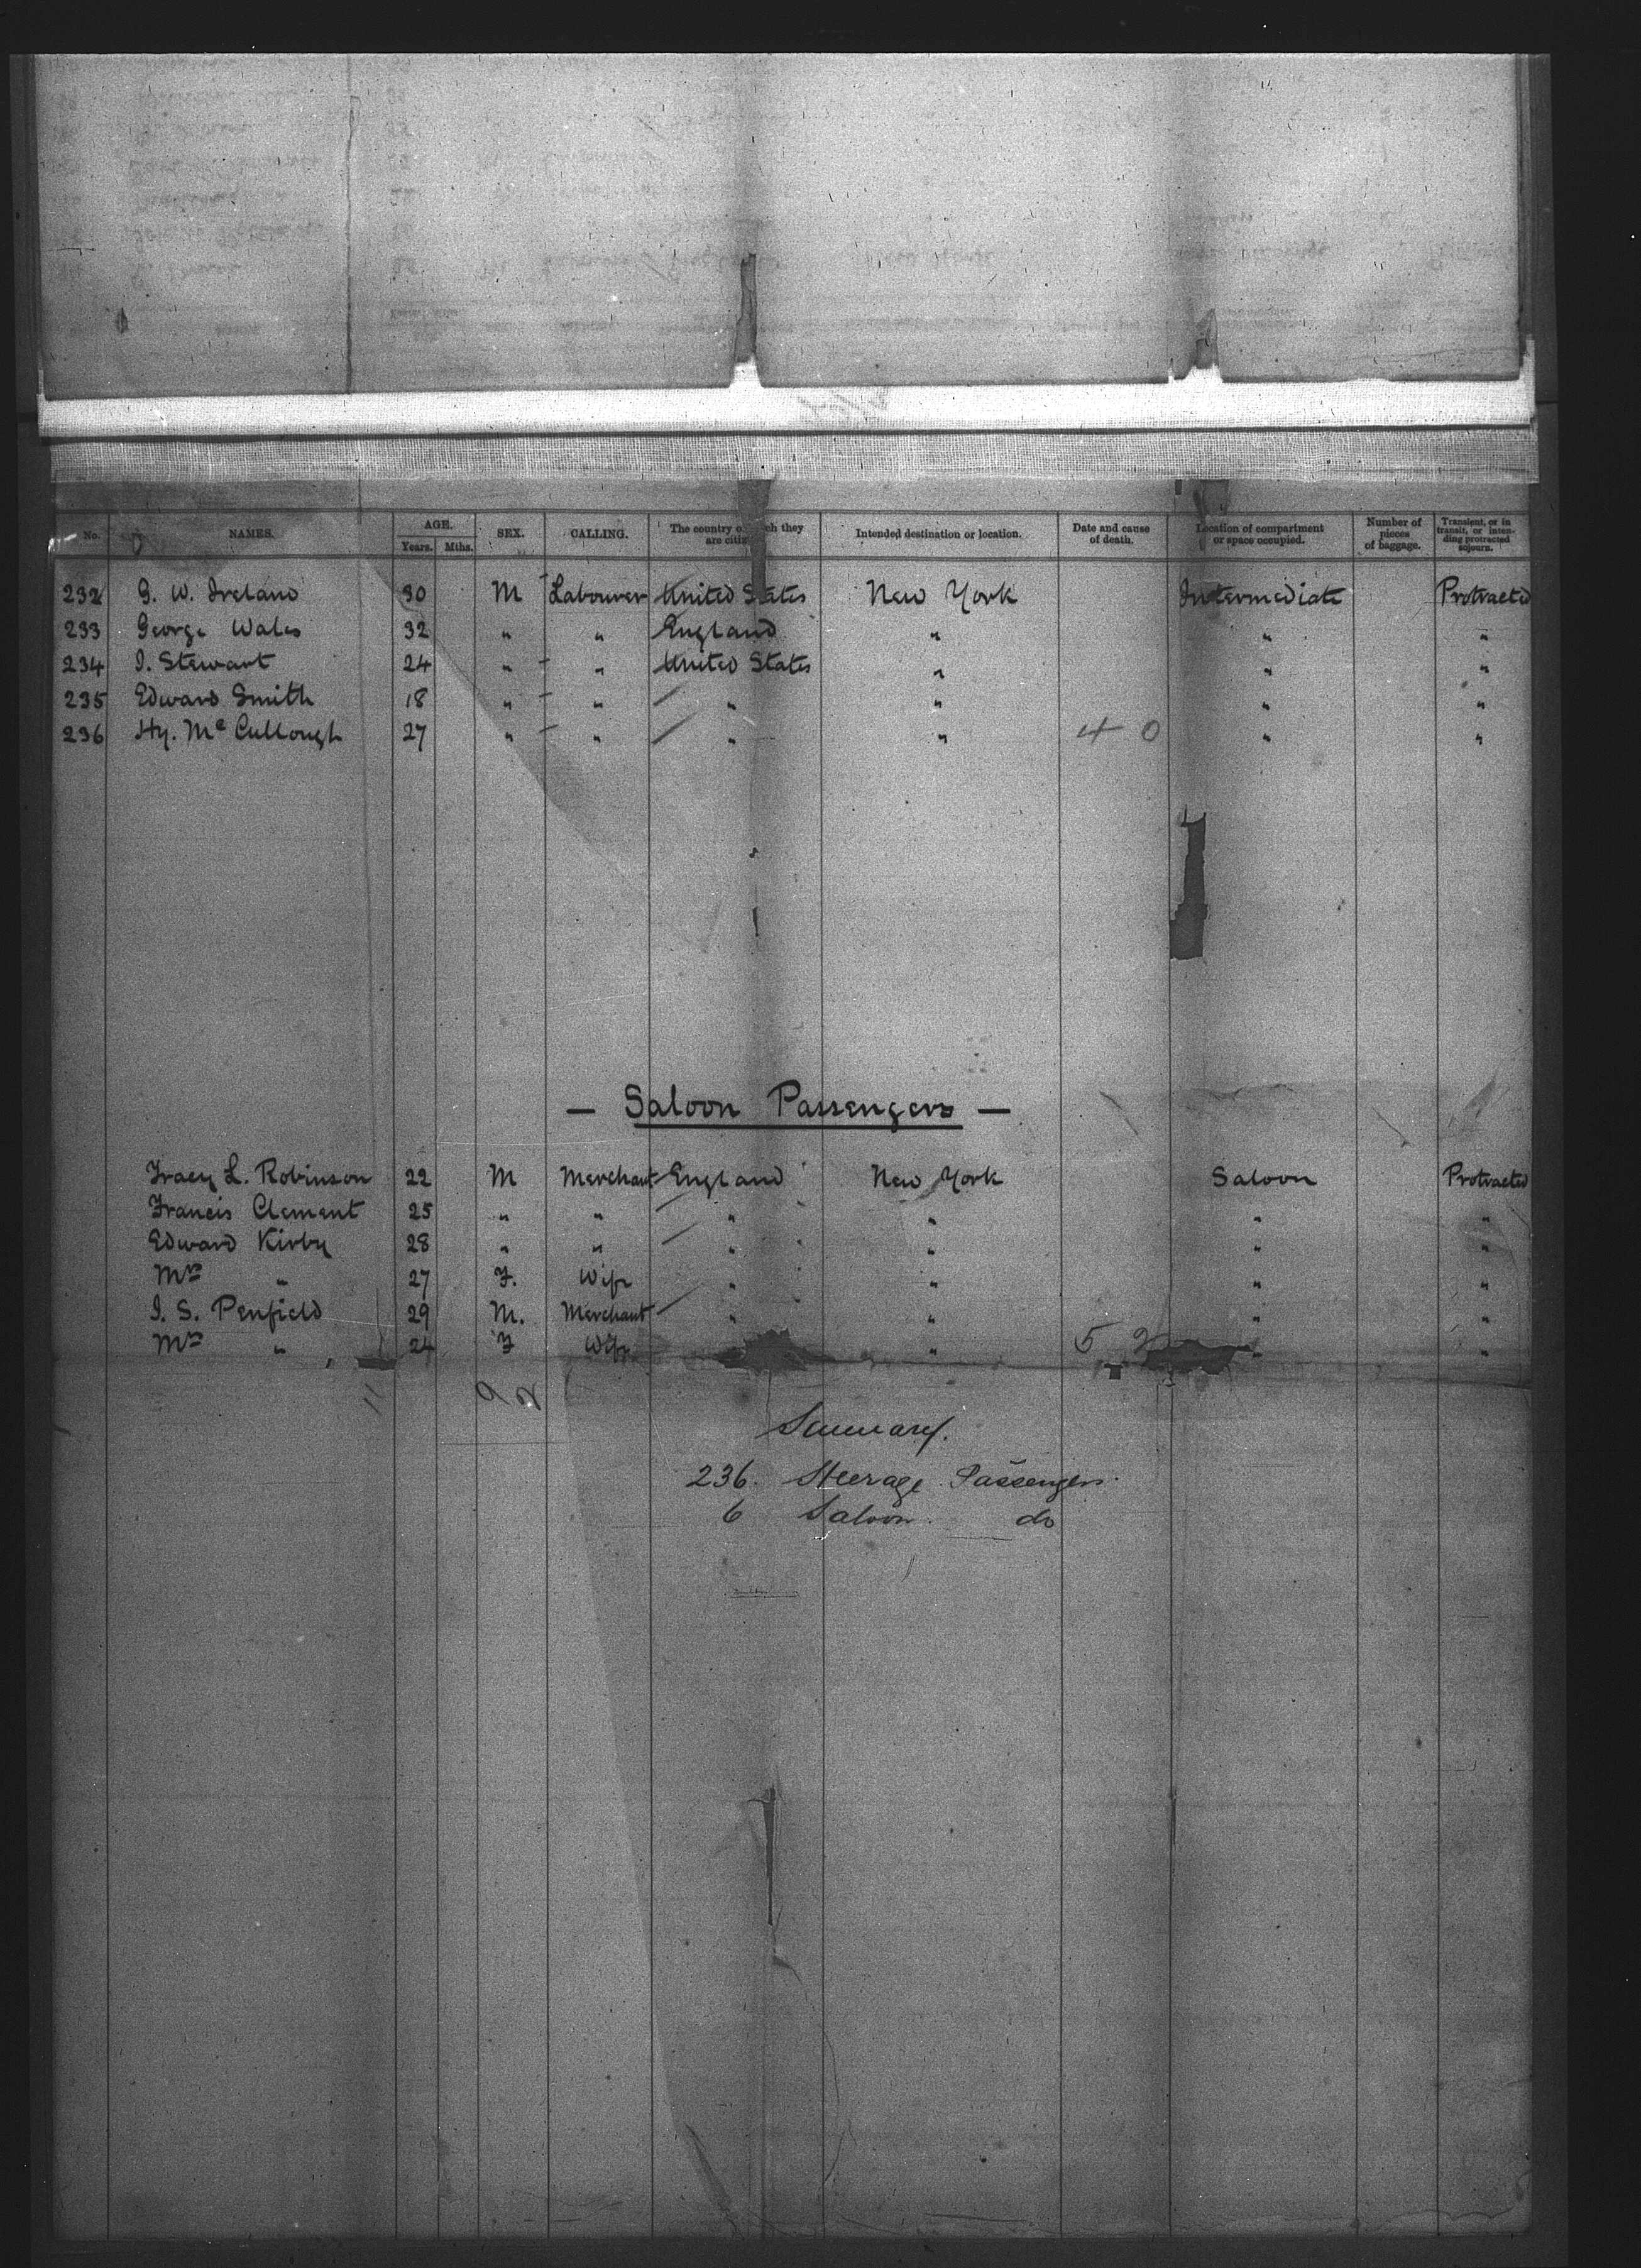 No. NAMES. AGE. Years. Mths. SEX. CALLING. The country of which they are citizens. Intended destination or location. Date and cause of death. Location of compartment or space occupied. Number of pieces of baggage. Transient, or in transit, or intending protracted sojourn.
232 G. W. Ireland 30 M Labourer United States New York Intermediate Protracted
233 George Wales 32 " " England " " "
234 J. Stewart 24 " " United States " " "
235 Edward Smith 18 " " " " " "
236 Hy. McCullough 27 " " " " 4 0 " "
— Saloon Passengers —
Tracy L. Robinson 22 M Merchant England New York Saloon Protracted
Francis Clement 25 " " " " " "
Edward Kirby 28 " " " " " "
Mrs " 27 F. Wife " " " "
J. S. Penfield 29 M. Merchant " " " "
Mrs " 24 F Wife " 5 2 " "
11 9 2
Summary.
236. Steerage Passengers.
6 Saloon. do